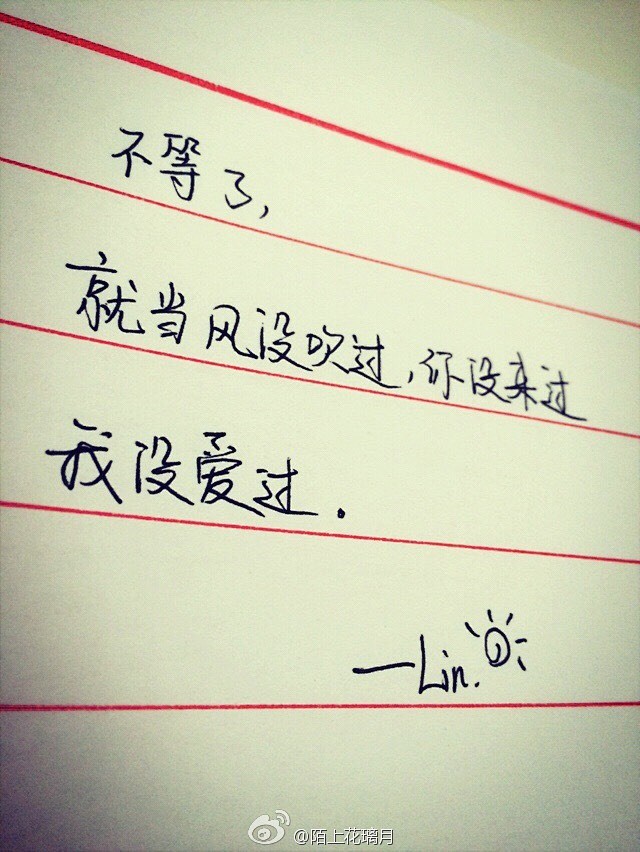 不等了,
就当风没吹过,你没来过
我没爱过.
—Lin.
@陌上花璃月